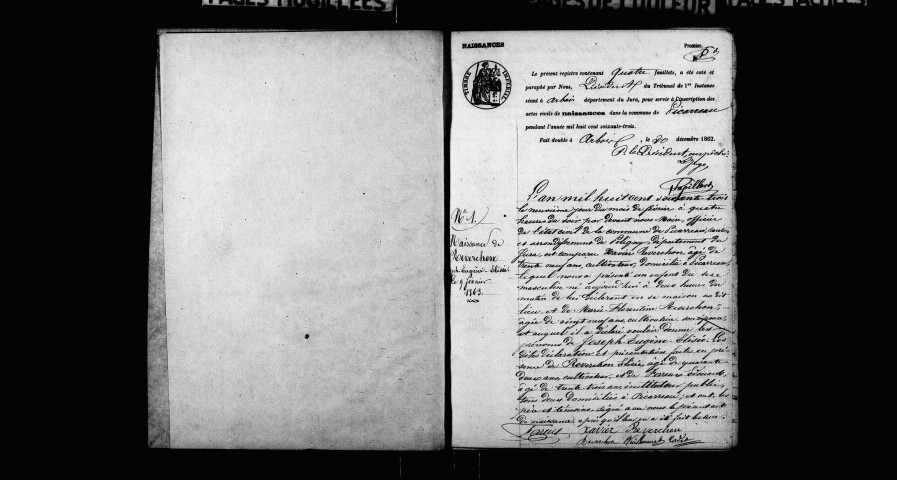 NAISSANCES
Premier
TIMBRE IMPERIAL
Le présent registre contenant Quatre feuillets, a été coté et
paraphé par Nous, Président du Tribunal de 1re Instance
séant à Arbois département du Jura, pour servir à l'inscription des
actes civils de naissances dans la commune de Picarreau
pendant l'année mil huit cent soixante-trois.
Fait double à Arbois, le 30 décembre 1862.
Le Président
L'an mil huit cent soixante trois
le neuvième jour du mois de février à quatre
heures du soir par devant nous Maire, officier
de l'état civil de la commune de Picarreau, canton
et arrondissement de Poligny département du
Jura, est comparu Xavier Reverchon âgé de
trente neuf ans, cultivateur, domicilié à Picarreau,
lequel nous a présenté un enfant du sexe
masculin né aujourd'hui à deux heures du
matin de lui déclarant en sa maison au dit
lieu et de Marie Florentine Reverchon,
âgée de vingt neuf ans, cultivatrice, son épouse,
et auquel il a déclaré vouloir donner les
prénoms de Joseph Eugène Elisée. Les
dites déclaration et présentation faites en pré-
sence de Reverchon Elisée, âgé de quarante
deux ans, cultivateur, et de Edouard,
âgé de trente trois ans, instituteur public,
tous deux domiciliés à Picarreau; et ont, les
père et témoins, signé avec nous le présent acte
de naissance après qu'il leur en a été fait lecture.
Xavier Reverchon
N° 1.
Naissance de
Reverchon
Eugène-Elisée
Le 9 février
1863.